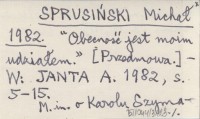 SPRUSIŃSKI Michał
1982. "Obecność jest moim
udziałem." [Przedmowa.] -
W: JANTA A. 1982, s.
5-15.
M.in. o Karolu Szyma-